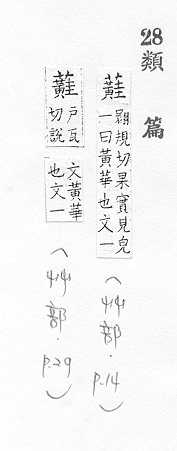 28類 篇
蘳 翾規切果實見皃
一曰黃華也文一
(艸部.P.14)
蘳 戶瓦
切說
文黃華
也文一
(艸部.P.29)